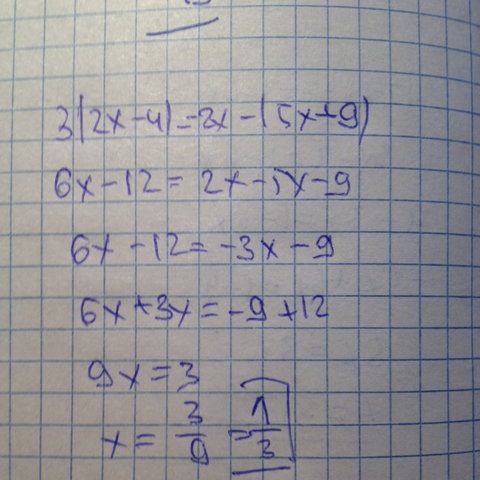 3(2x-4)=2x-(5x+9)
6x-12=2x-5x-9
6x-12=-3x-9
6x+3x=-9+12
9x=3
x=3/9=1/3